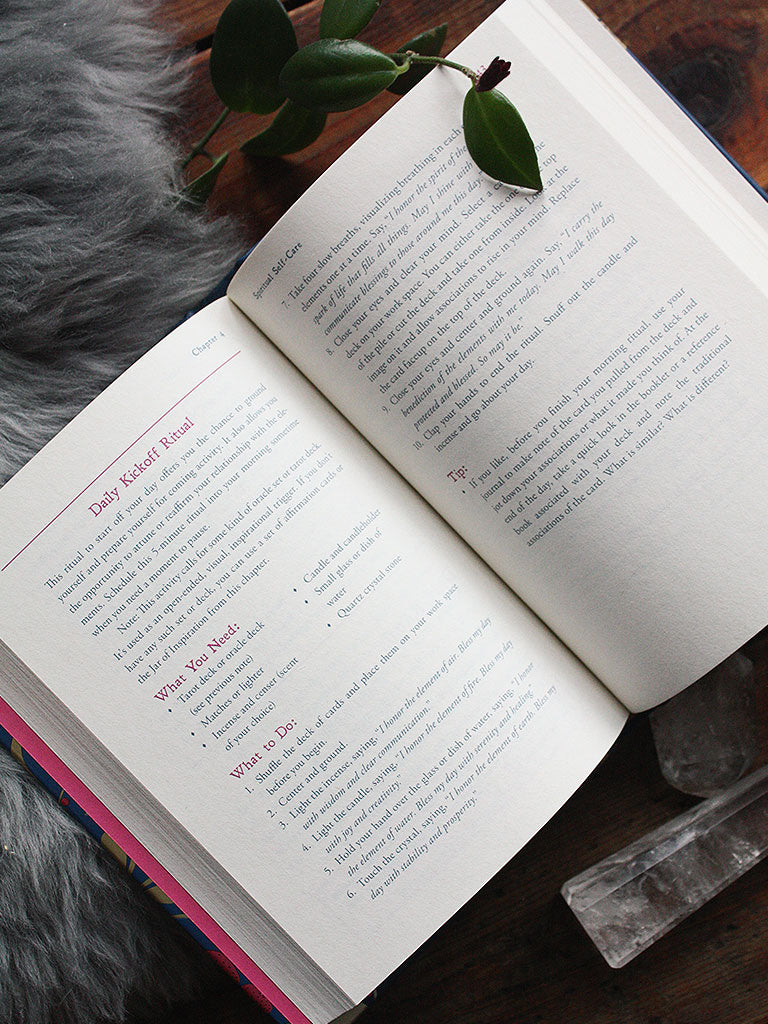 Chapter 4
Daily Kickoff Ritual
This ritual to start off your day offers you the chance to ground
yourself and prepare yourself for coming activity. It also allows you
the opportunity to attune or reaffirm your relationship with the ele-
ments. Schedule this 5-minute ritual into your morning sometime
when you need a moment to pause.
Note: This activity calls for some kind of oracle set or tarot deck.
It's used as an open-ended, visual, inspirational trigger. If you don't
have any such set or deck, you can use a set of affirmation cards or
the Jar of Inspiration from this chapter.
What You Need:
• Tarot deck or oracle deck
(see previous note)
• Matches or lighter
• Incense and censer (scent
of your choice)
• Candle and candleholder
• Small glass or dish of
water
• Quartz crystal stone
What to Do:
1. Shuffle the deck of cards and place them on your work space
before you begin.
2. Center and ground.
3. Light the incense, saying, "I honor the element of air. Bless my day
with wisdom and clear communication."
4. Light the candle, saying, "I honor the element of fire. Bless my day
with joy and creativity."
5. Hold your hand over the glass or dish of water, saying, "I honor
the element of water. Bless my day with serenity and healing."
6. Touch the crystal, saying, "I honor the element of earth. Bless my
day with stability and prosperity."
Spiritual Self-Care
7. Take four slow breaths, visualizing breathing in each
elements one at a time. Say, "I honor the spirit of the
spark of life that fills all things. May I shine with
communicate blessings to those around me this day
8. Close your eyes and clear your mind. Select a the
deck on your work space. You can either take the one top
of the pile or cut the deck and take one from inside. at the
image on it and allow associations to rise in your mind. Replace
the card faceup on the top of the deck.
9. Close your eyes and center and ground again. Say, "I carry the
benediction of the elements with me today. May I walk this day
protected and blessed. So may it be."
10. Clap your hands to end the ritual. Snuff out the candle and
incense and go about your day.
Tip:
• If you like, before you finish your morning ritual, use your
journal to make note of the card you pulled from the deck and
jot down your associations or what it made you think of. At the
end of the day, take a quick look in the booklet or a reference
book associated with your deck and note the traditional
associations of the card. What is similar? What is different?